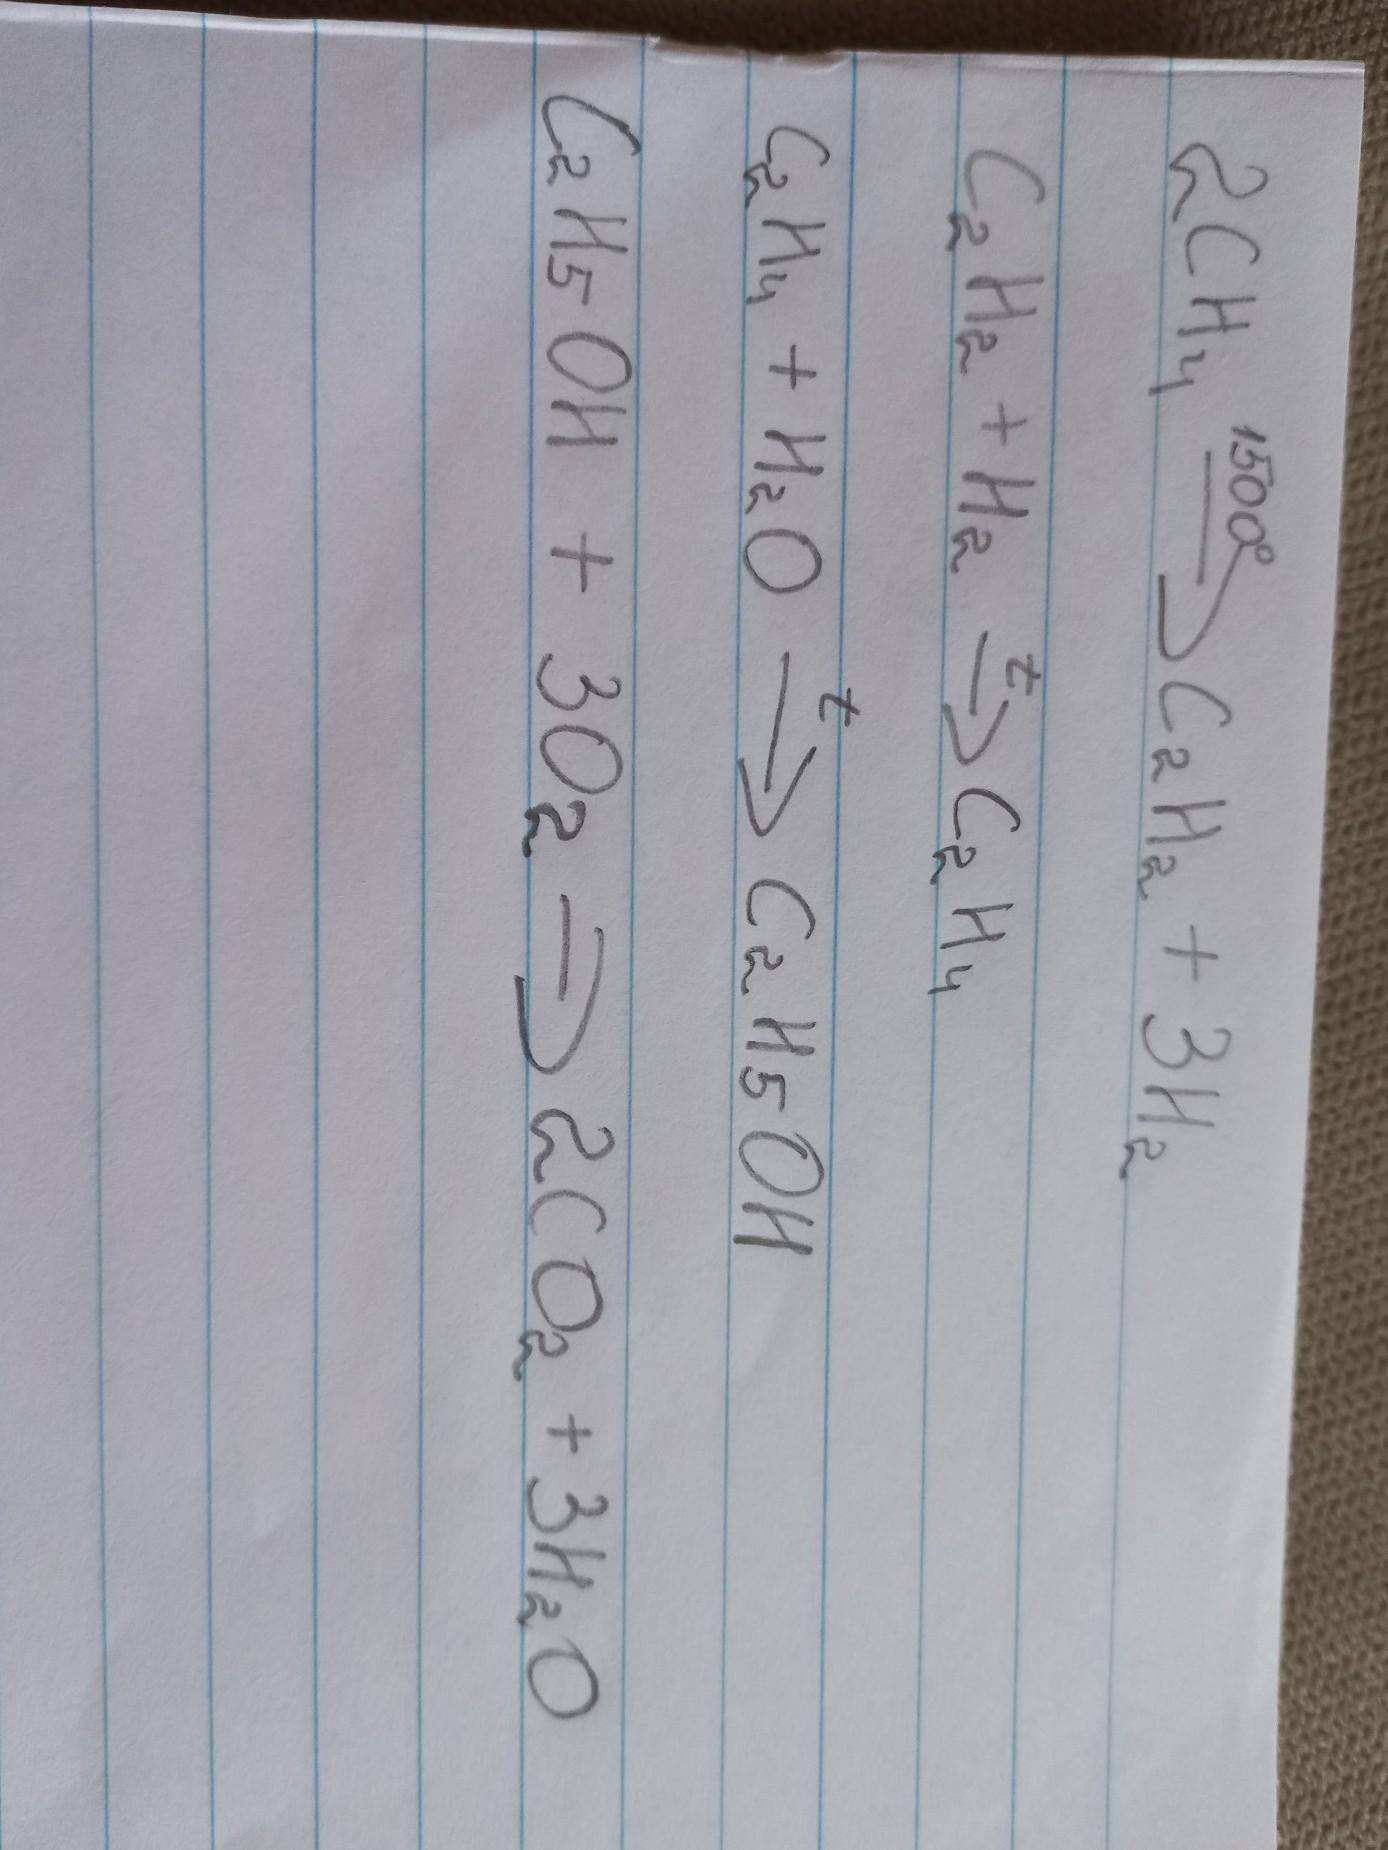 2CH₄ 1500° → C₂H₂ + 3H₂
C₂H₂ + H₂ t → C₂H₄
C₂H₄ + H₂O t → C₂H₅OH
C₂H₅OH + 3O₂ → 2CO₂ + 3H₂O